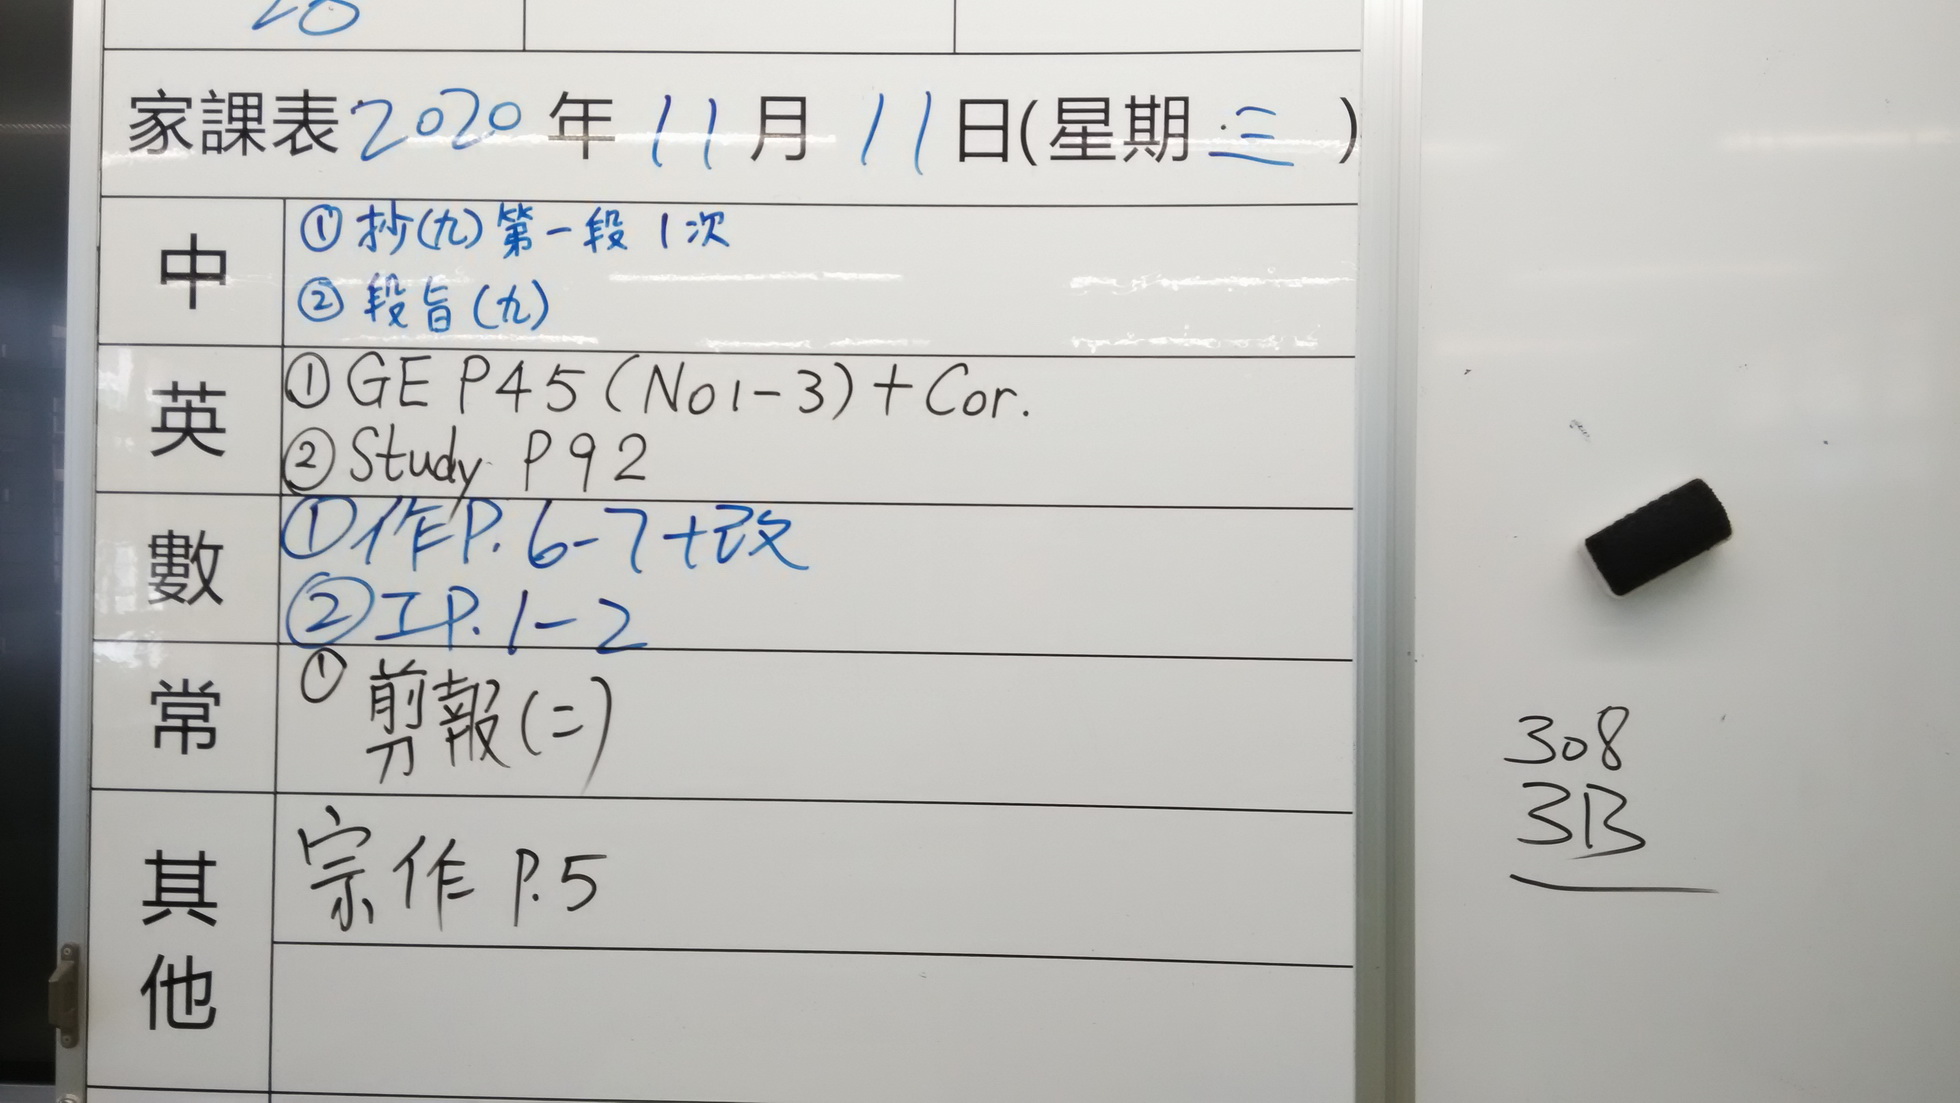 28
家課表 2020 年 11 月 11 日(星期 三 )
中
① 抄(九) 第一段 1 次
② 段旨(九)
英
① GE P45 (No1-3) + Cor.
② Study P92
數
① 作P. 6-7+改
② 工P. 1-2
常
① 剪報(二)
其他
宗作 P.5
308
3B